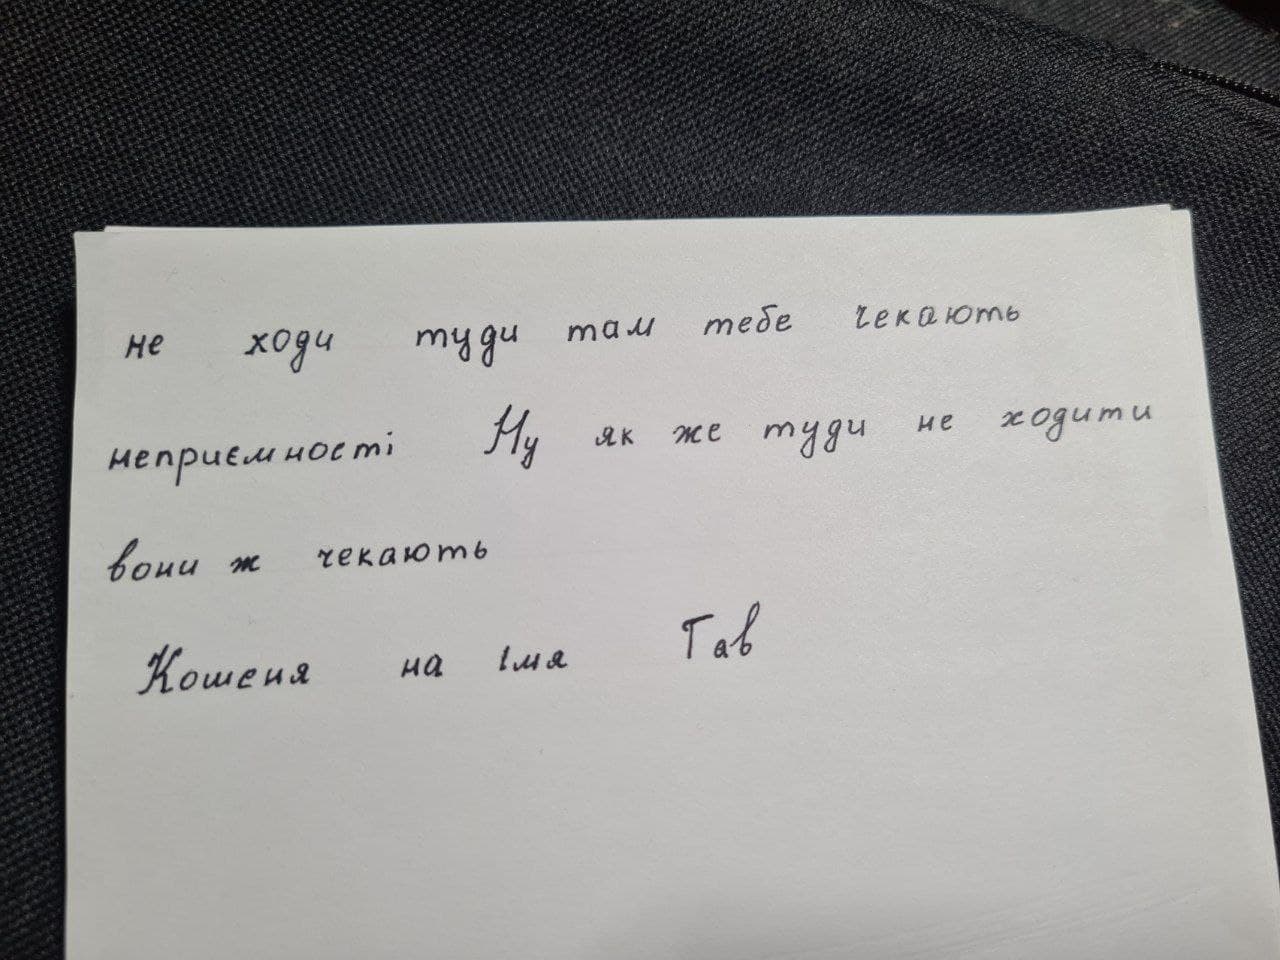 не ходи туди там тебе чекають
неприємності Ну як же туди не ходити
вони ж чекають
Кошеня на імя Гав